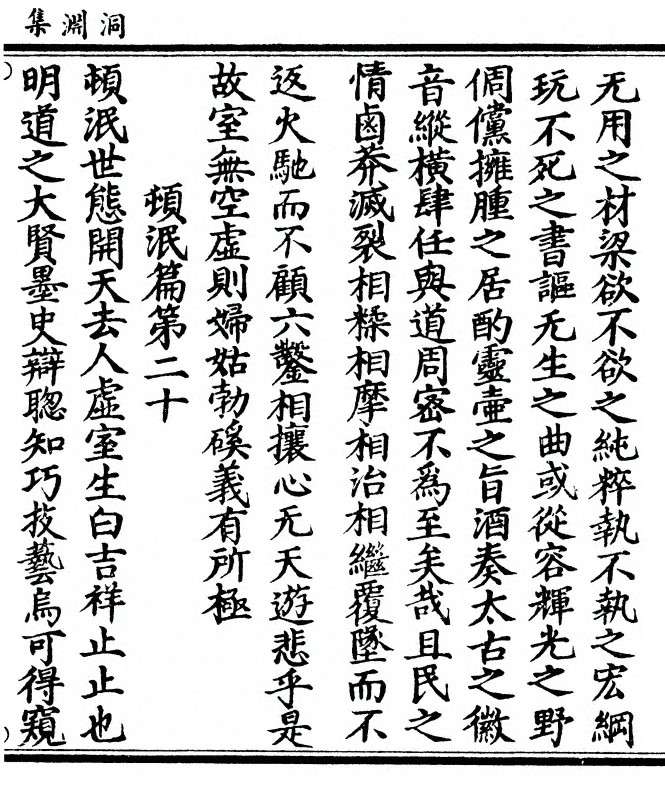 洞淵集
无用之材梁欲不欲之純粹執不執之宏綱
玩不死之書謳无生之曲或從容輝光之野
倜儻擁腫之居酌靈壺之旨酒奏太古之徽
音縱橫肆任與道周密不為至矣哉且民之
情鹵莽滅裂相糅相摩相治相繼覆墜而不
返火馳而不顧六鑿相攘心无天遊悲乎是
故室無空虛則婦姑勃磎義有所極
頓泯篇第二十
頓泯世態開天去人虛室生白吉祥止止也
明道之大賢墨史辯聦知巧技藝烏可得窺